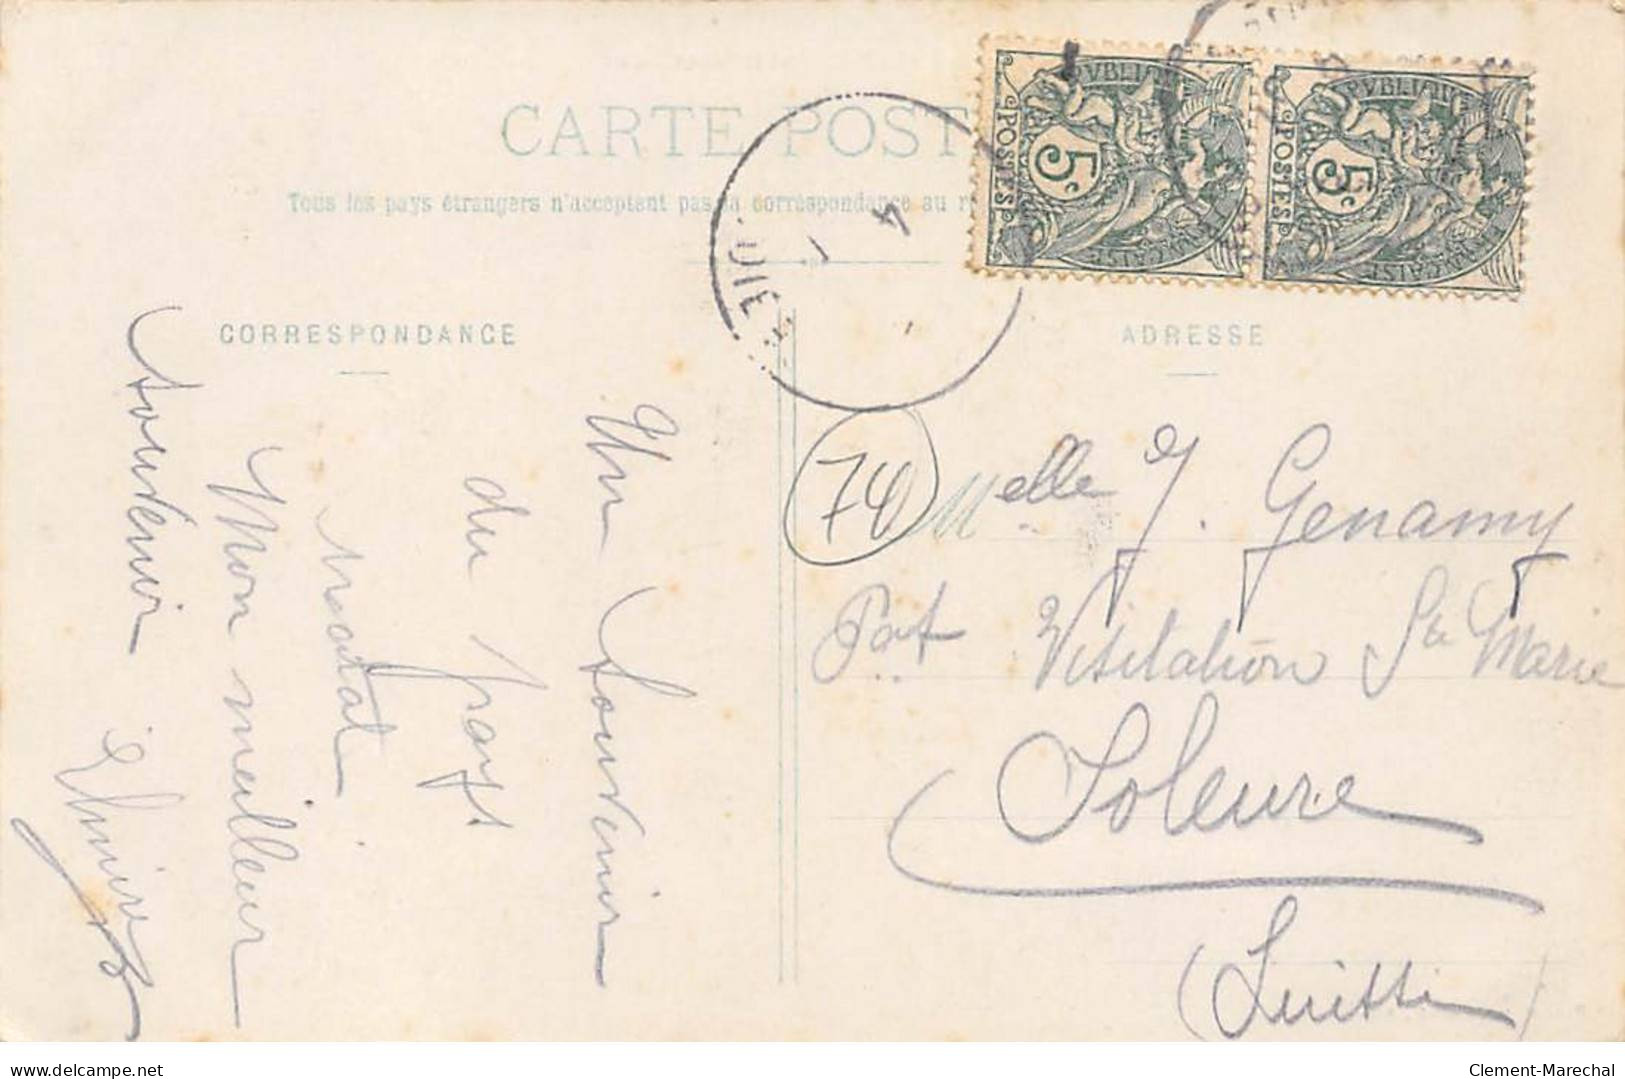 CARTE POST
Tous les pays étrangers n'acceptent pas la correspondance au r
CORRESPONDANCE
ADRESSE
RÉPUBLIQUE
FRANÇAISE
POSTES
5c
RÉPUBLIQUE
FRANÇAISE
POSTES
5c
4
1
DIE
74
Un Souvenir
du pays
natal
Mon meilleur
souvenir
Melle J. Genamy
Pat Visitation Ste Marie
Soleure
(Suisse
Delcampe.net
Clement-Marechal